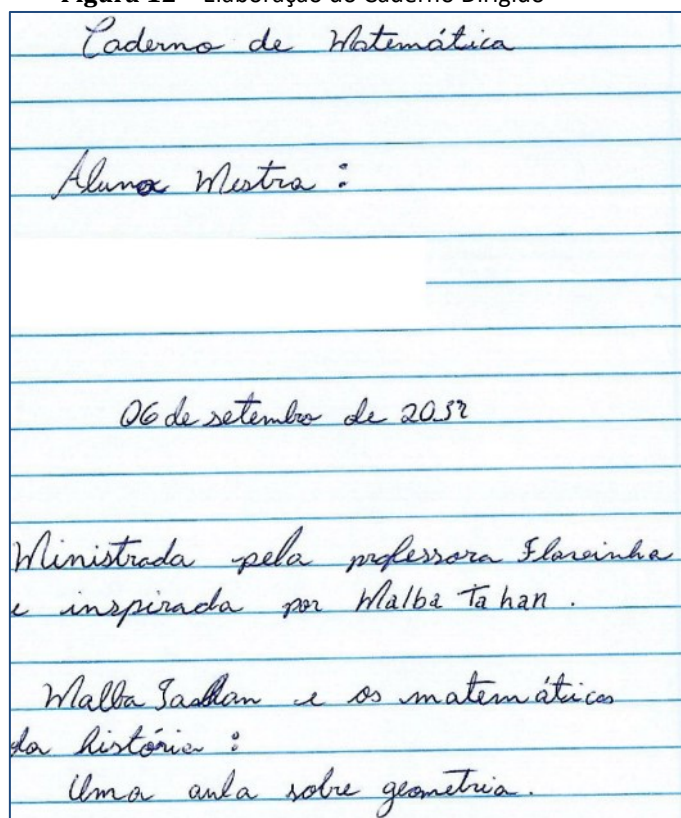 Figura 12 – Elaboração do Caderno Dirigido
Caderno de Matemática
Aluna Mestra :
06 de setembro de
Ministrada pela professora
e inspirada por Malba Tahan .
Malba e os matemáticos
da história :
Uma aula sobre geometria .